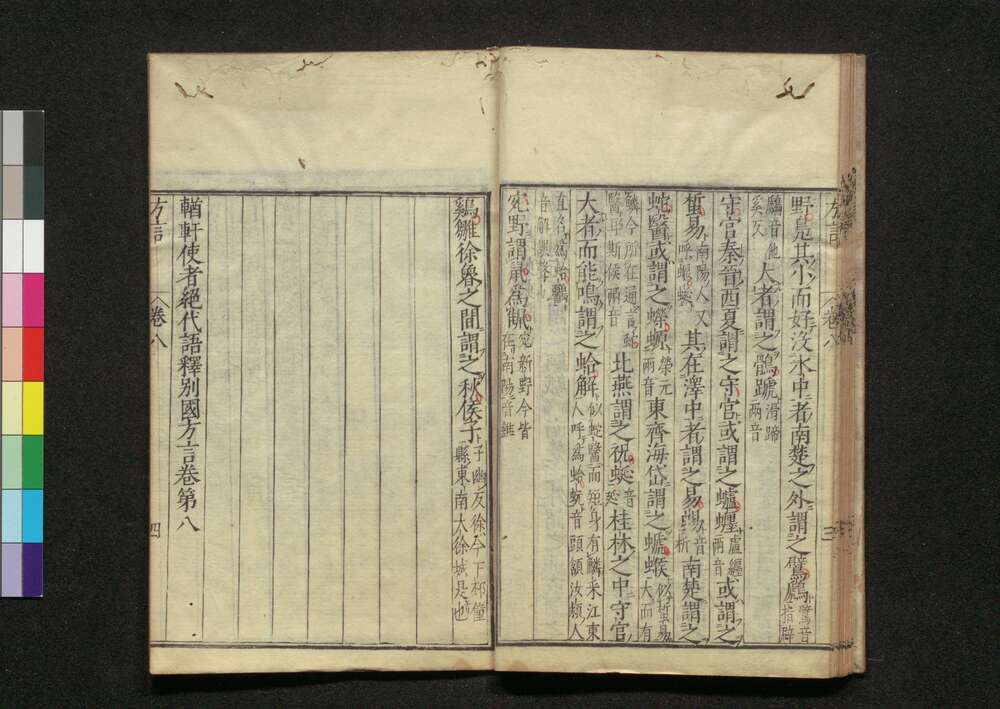 野鳧其小而好沒水中者南楚之外謂之鷿鷉鷿音指辟
鷉音他奚反大者謂之鶻蹏滑蹄兩音
守宮秦晉西夏謂之守宮或謂之蠦𧔧盧纏兩音或謂之
蜇易南陽人又呼蝘蜓其在澤中者謂之易蜴音析南楚謂之
蛇醫或謂之蠑螈榮元兩音東齊海岱謂之螔䗔似蜇易大而有
鱗今所在通言蛇醫耳斯侯兩音北燕謂之祝蜓音延桂林之中守宮
大者而能鳴謂之蛤解似蛇醫而短身有鱗采江東人呼為蛤蚖音頭頷汝潁人
直名為蛤解音解誤聲也
宛野謂鼠為䶆宛新野今皆在南陽音錐
鷄雛徐魯之間謂之秋侯子子幽反徐今下邳僮縣東南大徐城是也
輶軒使者絕代語釋別國方言卷第八
方言 卷八 三
方言 卷八 四